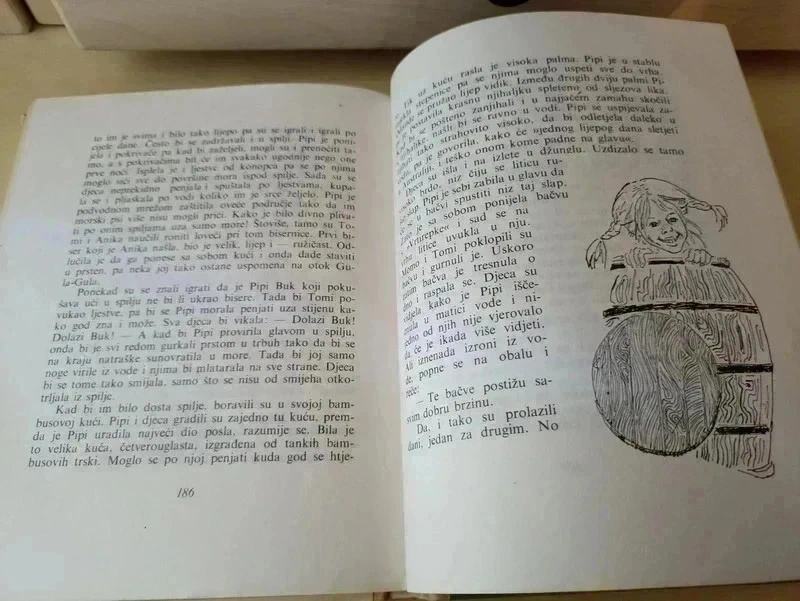 to im je svima i bilo tako lijepo pa su se igrali i igrali po
cijele dane. Često bi se zadržavali i u spilji. Pipi je poni-
jela i pokrivače pa kad bi zaželjeli, mogli su i prenoćiti ta-
mo, a s pokrivačima bit će im svakako ugodnije nego one
prve noći. Isplela je i ljestve od konopca pa se po njima
moglo sići sve do površine mora ispod spilje. Sada su se
djeca neprekidno penjala i spuštala po ljestvama, kupa-
la se i pljaskala po vodi koliko im je srce željelo. Pipi je
podvodnom mrežom zaštitila oveće područje tako da im
morski psi više nisu mogli prići. Kako je bilo divno pliva-
ti po onim spiljama uza samo more! Štoviše, tamo su To-
mi i Anika naučili roniti loveći pri tom bisernice. Prvi bi-
ser koji je Anika našla, bio je velik, lijep i — ružičast. Od-
lučila je da ga ponese sa sobom kući i onda dade staviti
u prsten, pa neka joj tako ostane uspomena na otok Gu-
la-Gula.
Ponekad su se znali igrati da je Pipi Buk koji poku-
šava ući u spilju ne bi li ukrao bisere. Tada bi Tomi po-
vukao ljestve, pa bi se Pipi morala penjati uza stijenu ka-
ko god zna i može. Sva djeca bi vikala: — Dolazi Buk!
Dolazi Buk! — A kad bi Pipi provirila glavom u spilju,
onda bi je svi redom gurkali prstom u trbuh tako da bi se
na kraju natraške sunovratila u more. Tada bi joj samo
noge virile iz vode i njima bi mlatarala na sve strane. Djeca
bi se tome tako smijala, samo što se nisu od smijeha otko-
trljala iz spilje.
Kad bi im bilo dosta spilje, boravili su u svojoj bam-
busovoj kući. Pipi i djeca gradili su zajedno tu kuću, prem-
da je Pipi uradila najveći dio posla, razumije se. Bila je
to velika kuća, četverouglasta, izgrađena od tankih bam-
busovih trski. Moglo se po njoj penjati kuda god se htje-
186
uz kuću rasla je visoka palma. Pipi je u stablu
stepenice pa se njima moglo uspeti sve do vrha.
se pružao lijep vidik. Između drugih dviju palmi Pi-
postavila krasnu njihaljku spletenu od sljezova lika.
se pošteno zanjihali i u najjačem zamahu skočili
našli bi se ravno u vodi. Pipi se uspijevala za-
tako strahovito visoko, da bi odletjela daleko u
je govorila, kako će »jednog lijepog dana sletjeti
Australiji, i teško onom kome padne na glavu«.
Djeca su išla i na izlete u džunglu. Uzdizalo se tamo
brdo, niz čiju se liticu ru-
slap. Pipi je sebi zabila u glavu da
u bačvi spustiti niz taj slap.
je sa sobom ponijela bačvu
»Vrtirepke« i sad se na
litice uvukla u nju.
Momo i Tomi poklopili su
bačvu i gurnuli je. Uskoro
zatim bačva je tresnula o
dno i raspala se. Djeca su
vidjela kako je Pipi išče-
znula u matici vode i ni-
jedno od njih nije vjerovalo
da će je ikada više vidjeti.
Ali iznenada izroni iz vo-
de, popne se na obalu i
reče:
— Te bačve postižu sa-
svim dobru brzinu.
Da, i tako su prolazili
dani, jedan za drugim. No